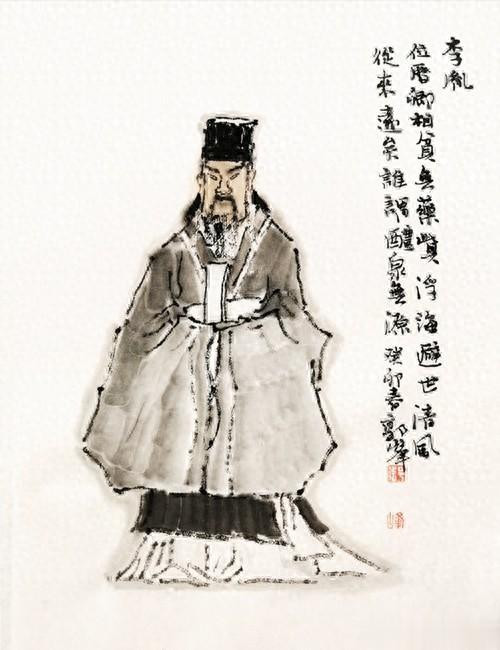 李胤
位曆卿相貧無藥貲浮海避世清風
從來遠矣誰謂醴泉無源 癸卯春郭